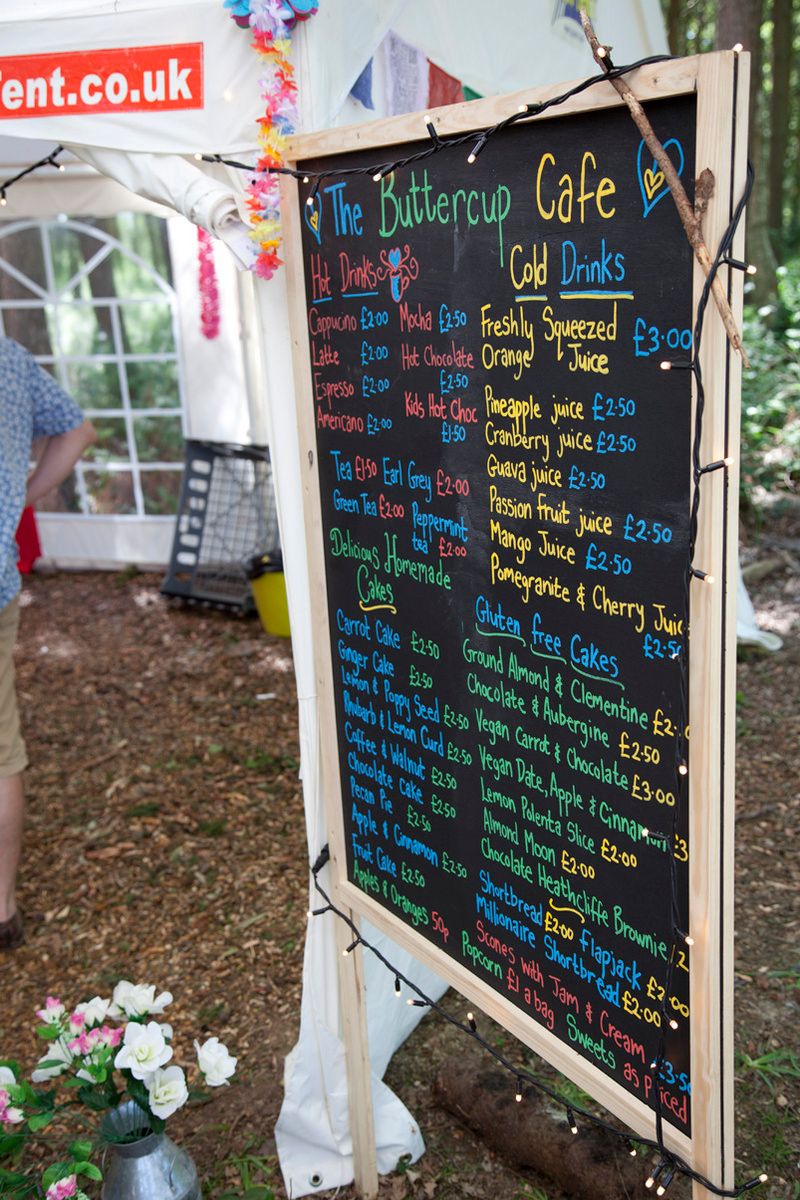 ent.co.uk
The Buttercup Cafe
Hot Drinks
Cappucino £2.00
Latte £2.00
Espresso £2.00
Americano £2.00
Mocha £2.50
Hot Chocolate
£2.50
Kids Hot Choc
£1.50
Tea £1.50 Earl Grey £2.00
Green Tea £2.00 Peppermint
tea £2.00
Delicious Homemade
Cakes
Carrot Cake £2.50
Ginger Cake £2.50
Lemon & Poppy Seed £2.50
Rhubarb & Lemon Curd £2.50
Coffee & Walnut £2.50
Chocolate Cake £2.50
Pecan Pie £2.50
Apple & Cinnamon £2.50
Fruit Cake £2.50
Apples & Oranges 50p
Cold Drinks
Freshly Squeezed £3.00
Orange Juice
Pineapple juice £2.50
Cranberry juice £2.50
Guava juice £2.50
Passion Fruit juice £2.50
Mango Juice £2.50
Pomegranite & Cherry Juic
£2.50
Gluten free Cakes
Ground Almond & Clementine
Chocolate & Aubergine £2.50
Vegan Carrot & Chocolate £3.00
Vegan Date, Apple & Cinnamon £3
Lemon Polenta Slice £2.00
Almond Moon £2.00
Chocolate Heathcliffe Brownie
Shortbread £2.00 Flapjack £2.00
Millionaire Shortbread £2.00
Scones with Jam & Cream £3.50
Popcorn £1 a bag Sweets as priced